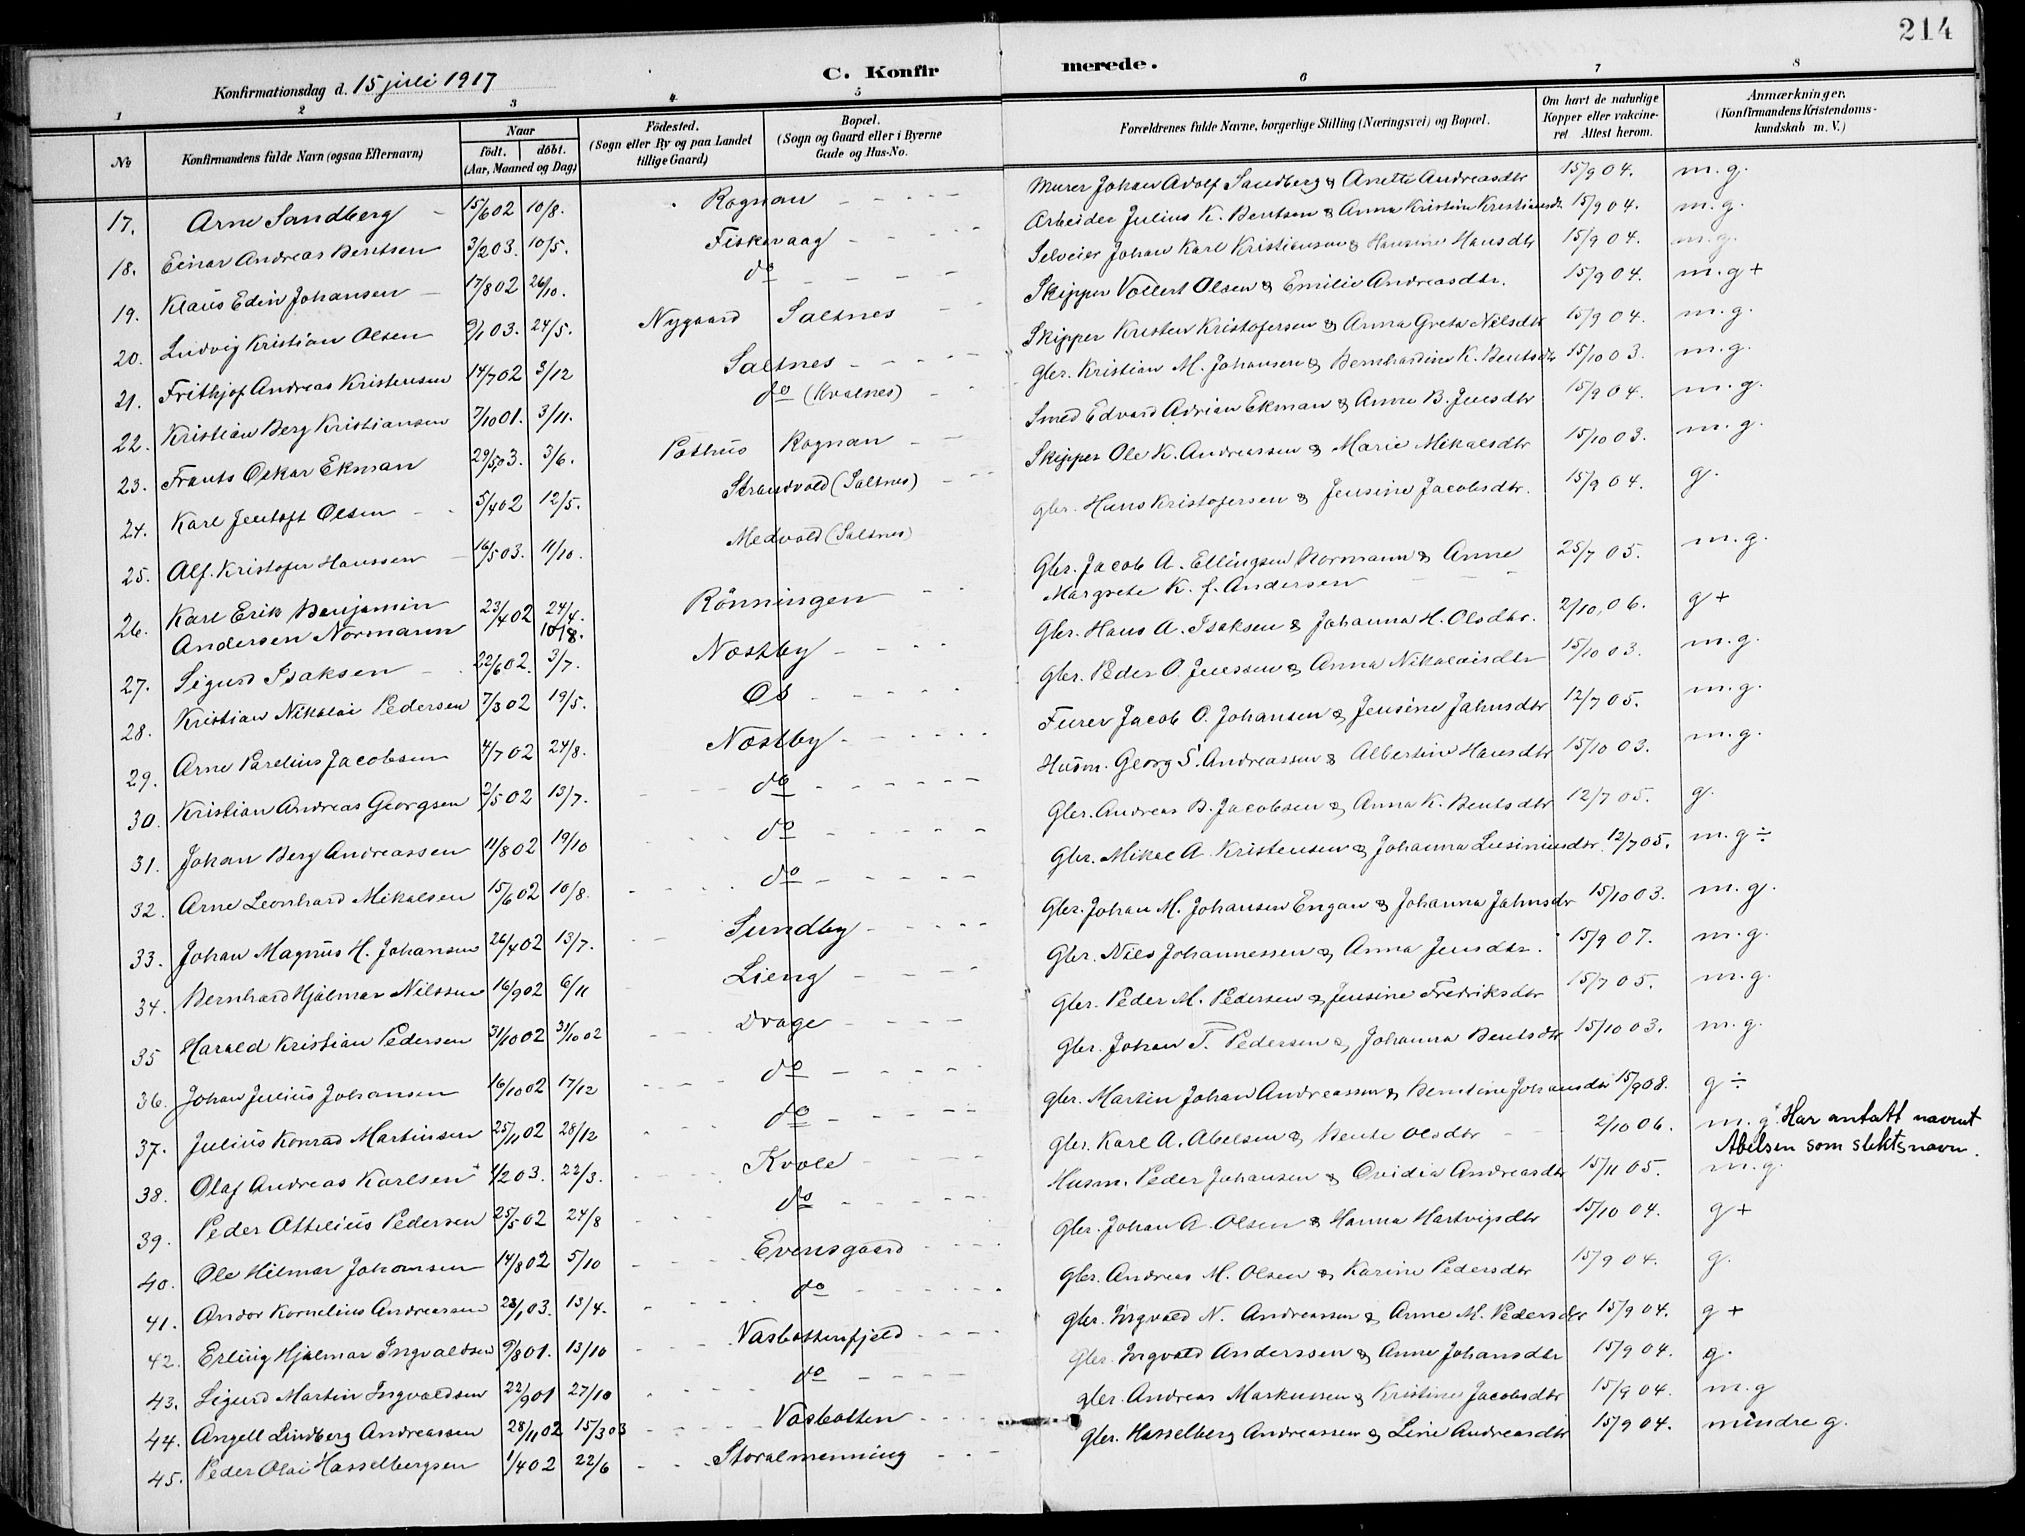 214
Konfirmationsdag d. 15 juli 1917
C. Konfirmerede.
1 2 3 4 5 6 7 8
№ Konfirmandens fulde Navn (ogsaa Efternavn) Naar født. døbt. (Aar, Maaned og Dag) Fødested. (Sogn eller By og paa Landet tillige Gaard) Bopæl. (Sogn og Gaard eller i Byerne Gade og Hus-No. Forældrenes fulde Navne, borgerlige Stilling (Næringsvei) og Bopæl. Om havt de naturlige Kopper eller vakcineret Attest herom. Anmærkninger. (Konfirmandens Kristendomskundskab m. V.)
17. Arne Sandberg 15/6 02 10/8. Rognan Murer Johan Adolf Sandberg & Anette Andreasdtr 15/9 04. m.g.
18. Einar Andreas Bentsen 3/2 03. 10/5. Fiskevaag Arbeider Julius K. Bentsen & Anna Kristine Kristiansdt. 15/9 04. m.g.
19. Klaus Edin Johansen 17/8 02 26/10. do Selveier Johan Karl Kristiansen & Hansine Hansdtr 15/9 04. m.g.
20. Ludvig Kristian Olsen 9/1 03. 24/5. Nygaard Saltnes Skipper Vollert Olsen & Emilie Andreasdtr. 15/9 04. m.g+
21. Frithjof Andreas Kristensen 14/7 02 3/12 Saltnes Skipper Kristen Kristofersen & Anna Greta Nilsdtr 15/9 04. m.g.
22. Kristian Berg Kristiansen 7/10 01. 3/11. do (Kvalnes) Gbr. Kristian M. Johansen & Bernhardine K. Bentsdtr 15/10 03. m.g.
23. Frants Oskar Ekman 29/5 03. 3/6. Pothus Rognan Smed Edvard Adrian Ekman & Anne B. Jensdtr 15/9 04. m.g.
24. Karl Jentoft Olsen 5/4 02 12/5. Strandvold (Saltnes) Skipper Ole K. Andreassen & Marie Mikalsdtr 15/10 03. m.g.
25. Alf Kristofer Hanssen 16/5 03. 11/10. Medvold (Saltnes) Gbr. Hans Kristofersen & Jensine Jacobsdtr. 15/9 04. g.
26. Karl Erik Benjamin 23/4 02 24/4. Rönningen Gbr. Jacob A. Ellingsen Normann & Anne 25/7 05. m.g.
Andersen Normann 10/8. Margrete K. f. Andersen
27. Sigurd Isaksen 22/6 02. 3/7. Nestby Gbr. Hans A. Isaksen & Johanna H. Olsdtr. 2/10, 06. g+
28. Kristian Nikolai Pedersen 7/3 02 19/5. Os Gbr. Peder O. Jenssen & Anna Nikolaisdtr 15/10 03. m.g.
29. Arne Parelius Jacobsen 4/7 02 24/8. Nestby Furer Jacob O. Johansen & Jensine Jahnsdtr 12/7 05. m.g.
30. Kristian Andreas Georgsen 2/5 02 13/7. do Husm. Georg S. Andreassen & Albertine Hansdtr 15/10 03. m.g.
31. Johan Berg Andreassen 11/8 02 19/10 do Gbr. Andreas B. Jacobsen & Anna K. Bentsdtr 12/7 05. g.
32. Arne Leonhard Mikalsen 15/6 02 10/8. do Gbr. Mikal A. Kristensen & Johanna Lusiniusdtr. 12/7 05. m.g÷
33. Johan Magnus H. Johansen 26/4 02 13/7. Sundby Gbr. Johan M. Johansen Engan & Johanna Jahnsdtr 15/10 03. m.g.
34. Bernhard Hjalmar Nilssen 16/9 02 6/11 Lieng Gbr. Nils Johannessen & Anna Jensdtr. 15/9 07. m.g.
35 Harald Kristian Pedersen 31/10 02 31/10 02 Drage Gbr. Peder M. Pedersen & Jensine Fredriksdtr 15/7 05. m.g.
36. Johan Julius Johansen 16/10 02 17/12 do Gbr. Johan T. Pedersen & Johanna Bentsdtr 15/10 03. m.g.
37. Julius Konrad Martinsen 25/11 02 26/12 do Gbr. Martin Johan Andreassen & Berntine Johansdtr 15/9 08. g÷
38. Olaf Andreas Karlsen 1/2 03. 22/3. Kvale Gbr. Karl A. Abelsen & Bente Olsdtr 2/10 06. m.g. Har antatt navnet
Abelsen som slektsnavn.
39. Peder Ottelius Pedersen 25/5 02 24/8 do Husm. Peder Johansen & Ovidia Andreasdtr 15/11 05. m.g.
40. Ole Hilmar Johansen 14/8 02 5/10 Evensgaard Gbr. Johan A. Olsen & Hanna Hartvigsdtr 15/10 04. g+
41. Andor Kornelius Andreassen 23/1 03. 13/4. do Gbr. Andreas M. Olsen & Karine Pedersdtr 15/9 04. g.
42. Erling Hjalmar Ingvaldsen 9/8 01. 13/10 Vasbottenfjeld Gbr. Ingvald N. Andreassen & Anne M. Pedersdtr 15/9 04. g+
43. Sigurd Martin Ingvaldsen 22/9 01 27/10 do Gbr. Ingvald Anderssen & Anne Johansdtr 15/9 04. g.
44. Angell Lindberg Andreassen 28/11 02 15/3 03 Vasbotten Gbr. Andreas Markussen & Kristine Jacobsdtr 15/9 04. m.g
45. Peder Olai Hasselbergsen 1/4 02 22/6 Storalmenning Gbr. Hasselberg Andreassen & Line Andreasdtr 15/9 04. mindre g.